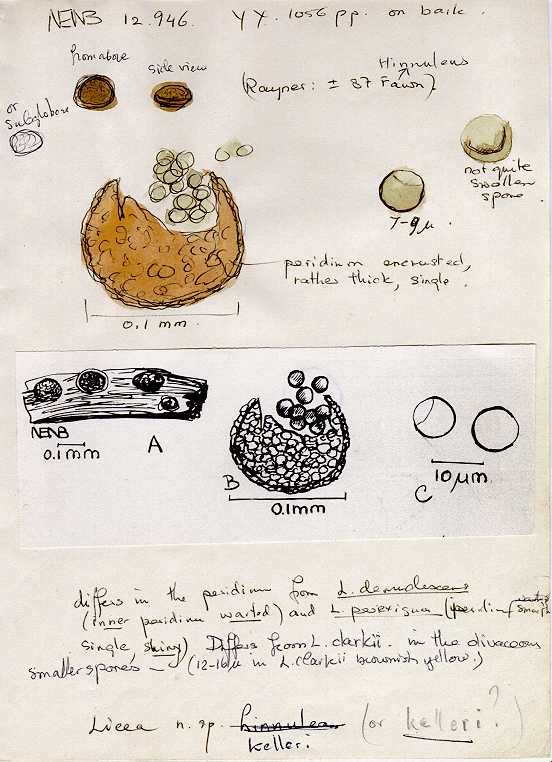 NENB 12.946. YY. 1056 pp. on bark.
from above
side view
Hinnuleus
(Rayner: ± 87 Fawn)
or subglobose
not quite
swollen
spore
7-9 µ.
peridium encrusted,
rather thick, single.
0.1 mm
NENB
0.1mm
A
B
0.1mm
C
10 µm
differs in the peridium from L. denudescens
(inner peridium warted) and L. perexigua (peridium smooth
single, shiny) Differs from L. clarkii. in the olivaceous
smaller spores — (12-16 µ in L. clarkii brownish yellow.)
Licea n. sp. hinnulea (or kelleri?
keller.